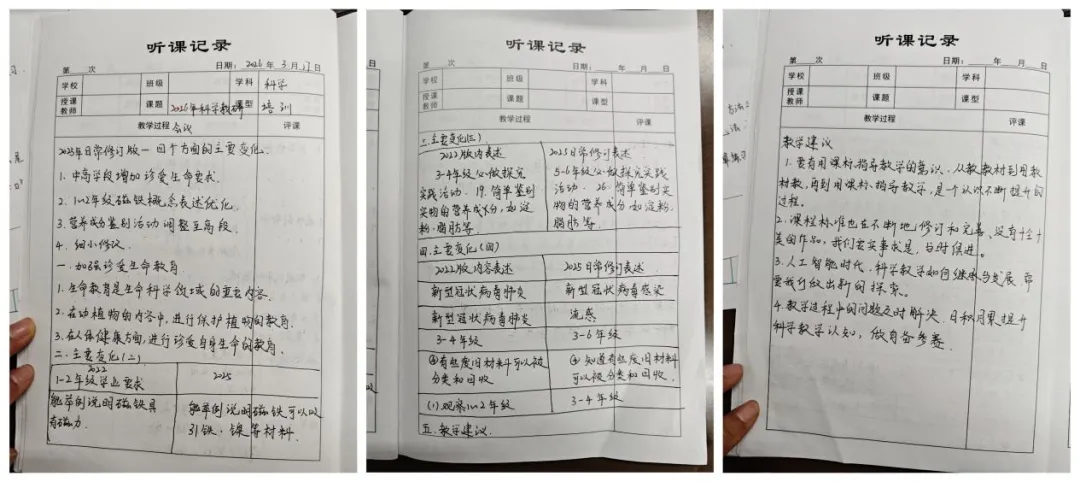 听课记录
第 次 日期: 2026 年 3 月 17 日
学校 班级 学科 科学
授课教师 课题 2026年科学教研 课型 培训
教学过程 会议 评课
2025年日常修订版一四个方面的主要变化.
1. 中高学段增加珍爱生命要求.
2. 1~2年级磁铁概念表述优化.
3. 营养成分鉴别活动调整至高段.
4. 细小修改.
一. 加强珍爱生命教育
1. 生命教育是生命科学领域的重要内容.
2. 在动植物的内容中,进行保护植物的教育.
3. 在人体健康方面,进行珍爱自身生命的教育.
二. 主要变化(二)
2022 2025
1-2年级学业要求
能举例说明磁铁具有磁力. 能举例说明磁铁可以吸引铁、镍等材料.
听课记录
第 次 日期: 年 月 日
学校 班级 学科
授课教师 课题 课型
教学过程 评课
三. 主要变化(三)
2022版内容表述 2025日常修订表述
3-4年级必做探究 5-6年级必做探究实践
实践活动. 19. 简单鉴别 活动. 26. 简单鉴别实
食物的营养成分,如淀 物的营养成分,如淀粉、
粉、脂肪等. 脂肪等.
四. 主要变化(四)
2022版内容表述 2025日常修订表述.
新型冠状病毒肺炎 新型冠状病毒感染
新型冠状病毒肺炎 流感
3-4年级 3-6年级
④有些废旧材料可以被 ④知道有些废旧材料
分类和回收 可以被分类和回收.
(1)观察1~2年级 3-4年级
五. 教学建议.
听课记录
第 次 日期: 年 月 日
学校 班级 学科
授课教师 课题 课型
教学过程 评课
教学建议
1. 要有用课标指导教学的意识. 从教教材到用教
材教,再到用课标指导教学,是一个认识不断提升的
过程.
2. 课程标准也在不断地修订和完善、没有十全十
美的作品,我们要实事求是,与时俱进.
3. 人工智能时代,科学教学如何继承与发展,需
要我们做出新的探索.
4. 教学过程中的问题及时解决. 日积月累提升
科学教学认知,做有备参赛.